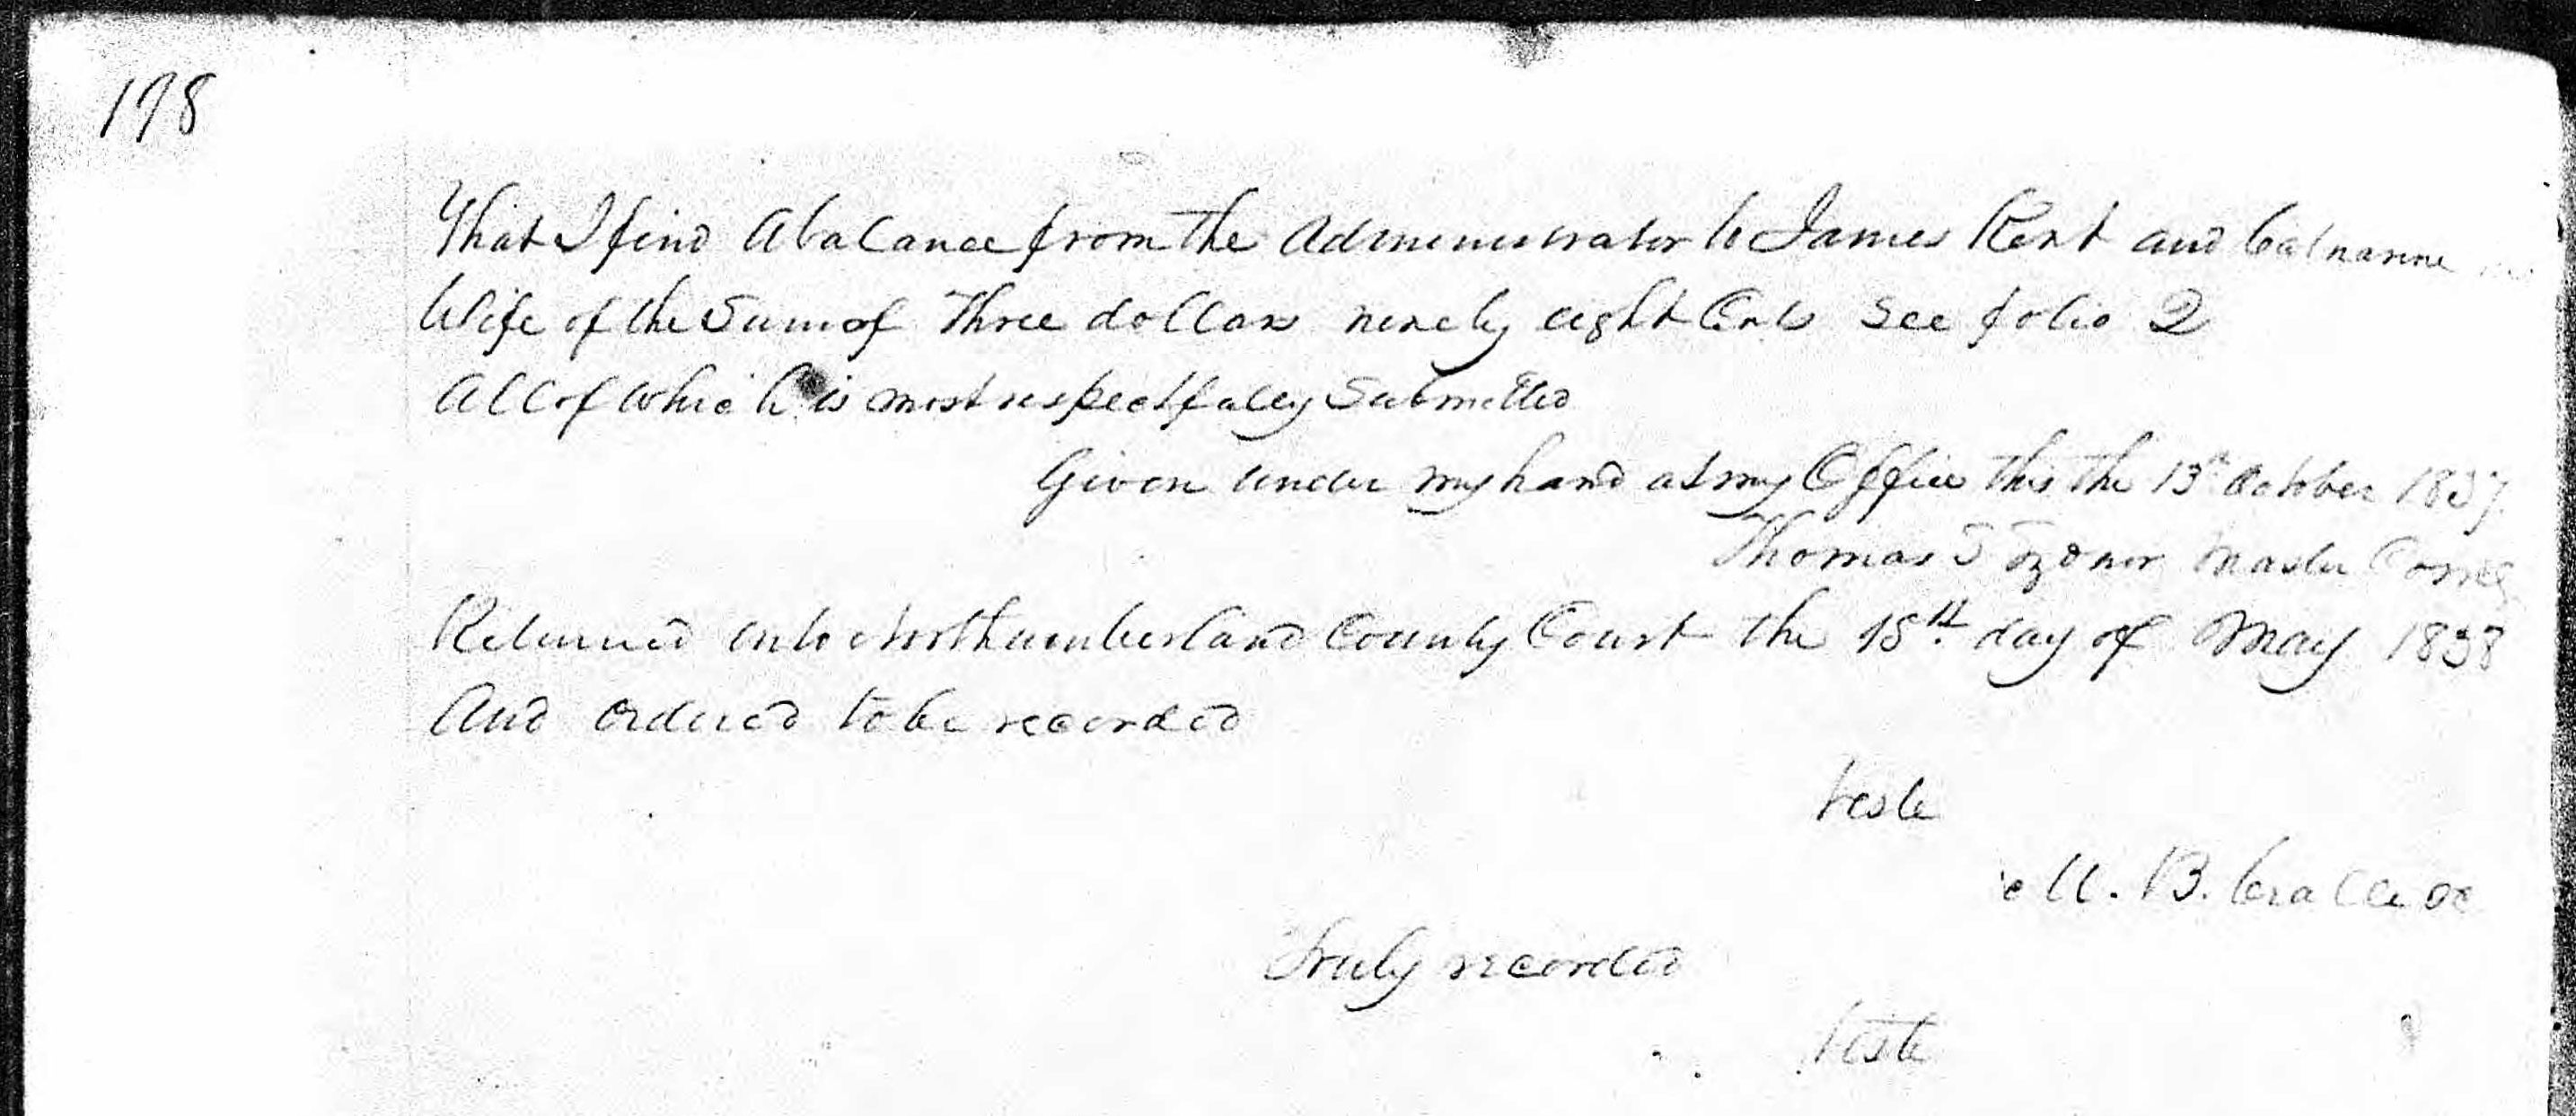 198
That I find A balance from the Administrator to James Kent and Catharine
Wife of the Sum of Three dollars ninety eight Cents See folio 2
All of which is most respectfully Submitted
Given under my hand at my Office this the 13th October 1837
Thomas S Sydnor Master Comr
Returned into Northumberland County Court the 15th day of May 1838
And ordered to be recorded
Teste
M. B. Cralle
Truly recorded
Teste